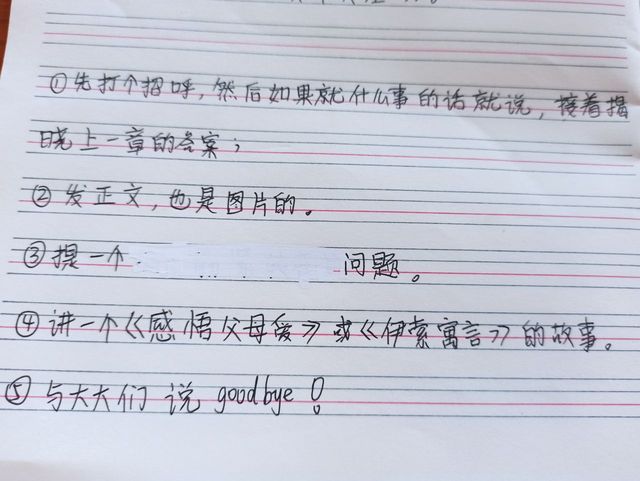 ①先打个招呼，然后如果就什么事的话就说，接着揭
晓上一章的答案；
②发正文，也是图片的。
③提一个 问题。
④讲一个《感悟父母爱》或《伊索寓言》的故事。
⑤与大大们 说 goodbye！